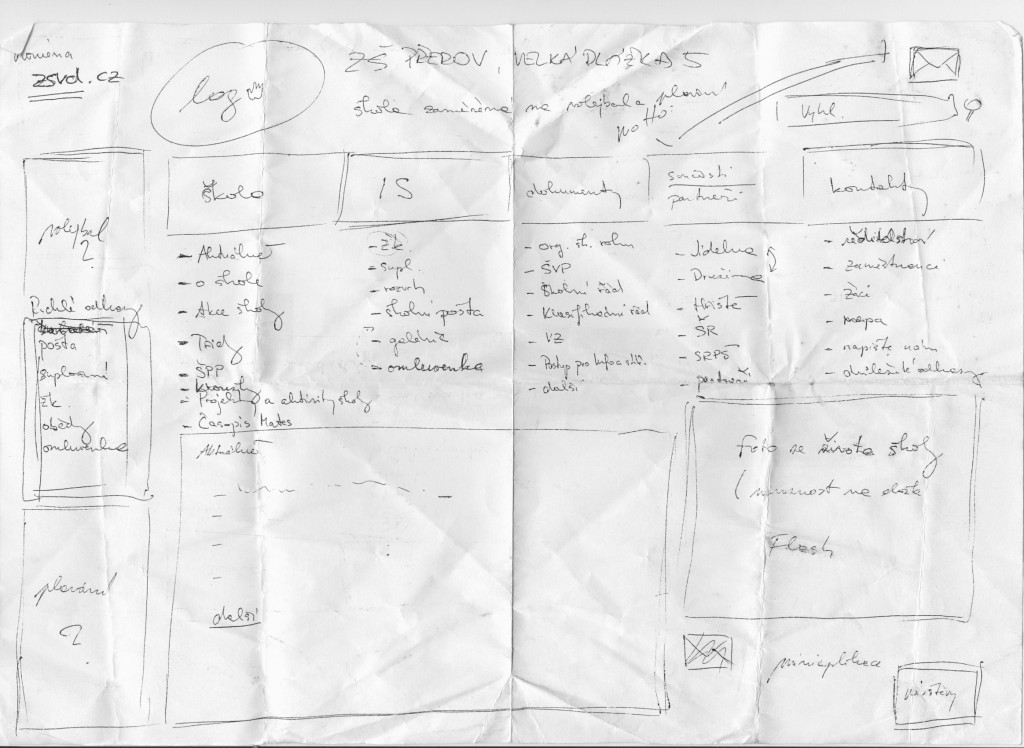 doména
zsvd.cz
logo
ZŠ PŘEROV, VELKÁ DLÁŽKA 5
škola zaměřená na volejbal a plavání
motto
vyhl.
volejbal
?
škola
IS
dokumenty
součásti
partneři
kontakty
- Aktuálně
- o škole
- Akce školy
- Třídy
- ŠPP
- Kroužky
- Projekty a aktivity školy
- Časopis Mates
- ŽK
- supl.
- rozvrh
- školní pošta
- galerie
- omluvenka
- org. šk. roku
- ŠVP
- Školní řád
- Klasifikační řád
- VZ
- další
- Jídelna
- Družina
- Hřiště
- ŠR
- SRPŠ
- partneři
- ředitelství
- zaměstnanci
- žáci
- mapa
- napište nám
- důležité odkazy
Rychlé odkazy
pošta
suplování
ŽK
obědy
omluvenka
Aktuálně
další
Foto ze života školy
Flash
plavání
?
miniaplikace